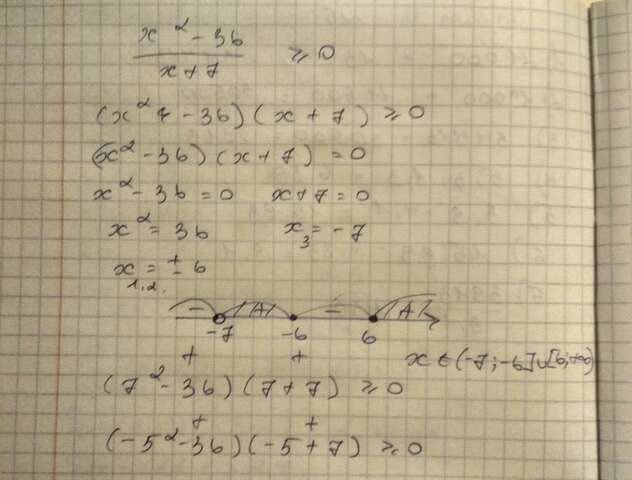 x² - 36 / x + 7 ≥ 0
(x² - 36)(x + 7) ≥ 0
(x² - 36)(x + 7) = 0
x² - 36 = 0 x + 7 = 0
x² = 36 x₃ = -7
x₁,₂. = ± 6
- + - +
-7 -6 6
x ∈ (-7; -6] ∪ [6; +∞)
+ +
(7² - 36)(7 + 7) ≥ 0
+ +
(-5² - 36)(-5 + 7) ≥ 0